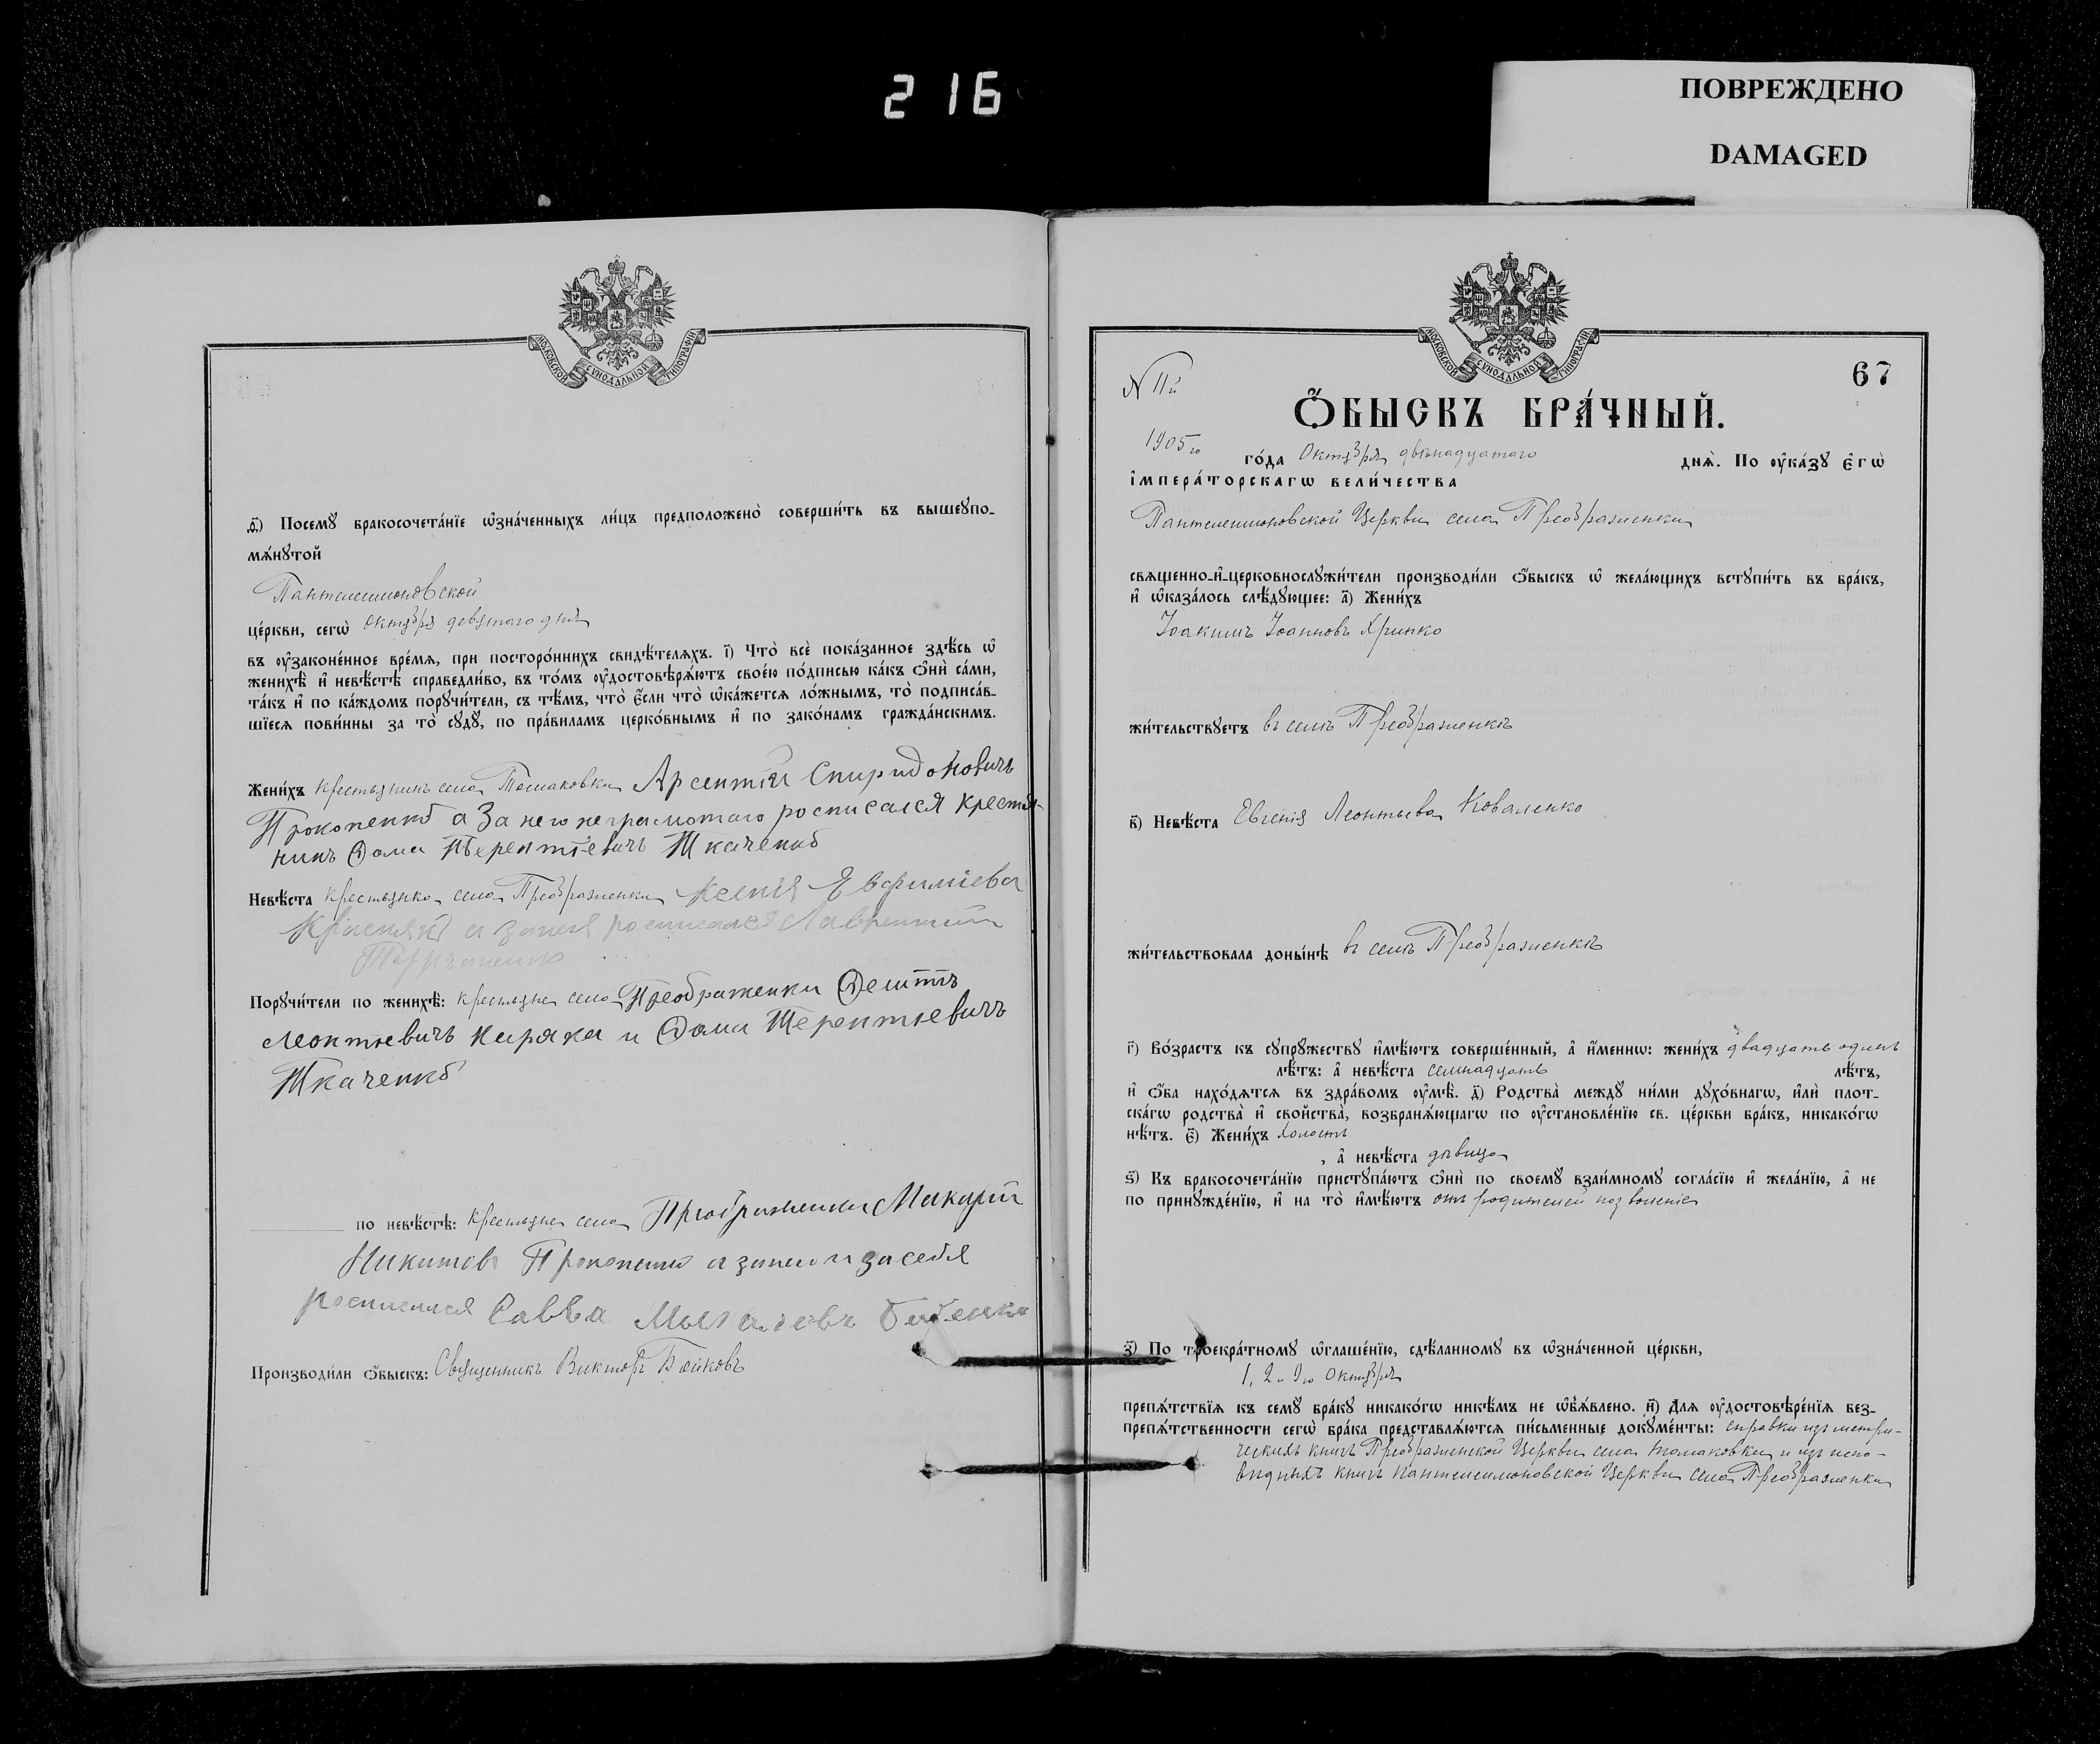 2 16
ПОВРЕЖДЕНО
DAMAGED
МОСКОВСКОЙ СѴНОДАЛЬНОЙ ТИПОГРАФІИ
д҃і) Посемꙋ̀ бракосочета́нїе ѡ҆зна́ченныхъ ли́цъ предположено̀ соверши́ть въ вышеꙋпо-
мѧ́нꙋтой
Пантелеимоновской
це́ркви, сегѡ̀ Октября девятаго дня
въ ᲂу҆законе́нное вре́мѧ, при посторо́ннихъ свидѣ́телѧхъ. і҃) Что̀ всѐ пока́занное здѣ́сь ѡ҆
женихѣ̀ и҆ невѣ́стѣ справедли́во, въ то́мъ ᲂу҆достовѣрѧ́ютъ свое́ю по́дписью ка́къ ѻ҆нѝ са́ми,
та́къ и҆ по ка́ждомъ порꙋчи́тели, съ тѣ́мъ, что̀ є҆́сли что̀ ѡ҆ка́жется ло́жнымъ, то̀ подписа́в-
шїесѧ пови́нны за то̀ сꙋдꙋ̀, по пра́виламъ церко́внымъ и҆ по зако́намъ гражда́нскимъ.
Жени́хъ крестьянинъ села Томаковки Арсентій Спиридоновичъ
Прокопенко а За него неграмотаго росписался крестья-
нинъ Ѳома Терентіевичъ Ткаченко
Невѣ́ста крестьянка села Преображенки Ксенія Евфиміева
а занея росписался Лаврентій
Порꙋчи́тели по женихѣ̀: крестьяне села Преображенки
Леонтіевичъ Каряка и Ѳома Терентіевичъ
Ткаченко
по невѣ́стѣ: крестьяне села Преображенки Макарій
Никитовъ Прокопенко а занего и засебя
росписался Савва
Производи́ли ѻ҆́быскъ: Священникъ Викторъ Бойковъ
МОСКОВСКОЙ СѴНОДАЛЬНОЙ ТИПОГРАФІИ
67
N 11й
Ѻ҆́БЫСКЪ БРА́ЧНЫЙ.
1905го го́да Октября двѣнадцатаго днѧ̀. По ᲂу҆ка́зꙋ є҆гѡ̀
і҆мпера́торскагѡ вели́чества
Пантелеимоновской Церкви села Преображенки
свѧщенно-и҆-церковнослꙋжи́тели производи́ли ѻ҆́быскъ ѡ҆ жела́ющихъ встꙋпи́ть въ бра́къ,
и҆ ѡ҆каза́лось слѣ́дꙋющее: а҃) Жени́хъ
Іоакимъ Іоанновъ Хринко
жи́тельствꙋетъ въ селѣ Преображенкѣ
в҃) Невѣ́ста Евгенія Леонтьева Коваленко
жи́тельствовала доны́нѣ въ селѣ Преображенкѣ
г҃) Во́зрастъ къ сꙋпрꙋ́жествꙋ и҆мѣ́ютъ соверше́нный, а҆ и҆́меннѡ: жени́хъ двадцать одинъ
лѣ́тъ: а҆ невѣ́ста семнадцать лѣ́тъ,
и҆ ѻ҆́ба нахо́дѧтсѧ въ здра́вомъ ᲂу҆мѣ̀. д҃) Родства̀ междꙋ̀ ни́ми дꙋхо́внагѡ, и҆лѝ плот-
ска́гѡ родства̀ и҆ сво́йства̀, возбранѧ́ющагѡ по ᲂу҆становле́нїю св. це́ркви бра́къ, никако́гѡ
нѣ́тъ. є҃) Жени́хъ холостъ
, а҆ невѣ́ста дѣвица
ѕ҃) Къ бракосочета́нїю пристꙋпа́ютъ ѻ҆нѝ по своемꙋ̀ взаи́мномꙋ согла́сїю и҆ жела́нїю, а҆ не
по принꙋжде́нїю, и҆ на то̀ и҆мѣ́ютъ отъ родителей позволеніе
з҃) По троекра́тномꙋ ѡ҆глаше́нїю, сдѣ́ланномꙋ въ ѡ҆зна́ченной це́ркви,
1, 2 и 9го Октября
препѧ́тствїѧ къ семꙋ̀ бра́кꙋ никако́гѡ никѣ́мъ не ѡ҆б̾ѧ́влено. и҃) Длѧ ᲂу҆достовѣре́нїѧ без-
препѧ́тственности сегѡ̀ бра́ка представлѧ́ютсѧ пи́сьменные докꙋме́нты: справки изъ метри-
ческихъ книгъ Преображенской Церкви села Томаковки и изъ испо-
вѣдныхъ книгъ Пантелеимоновской Церкви села Преображенки